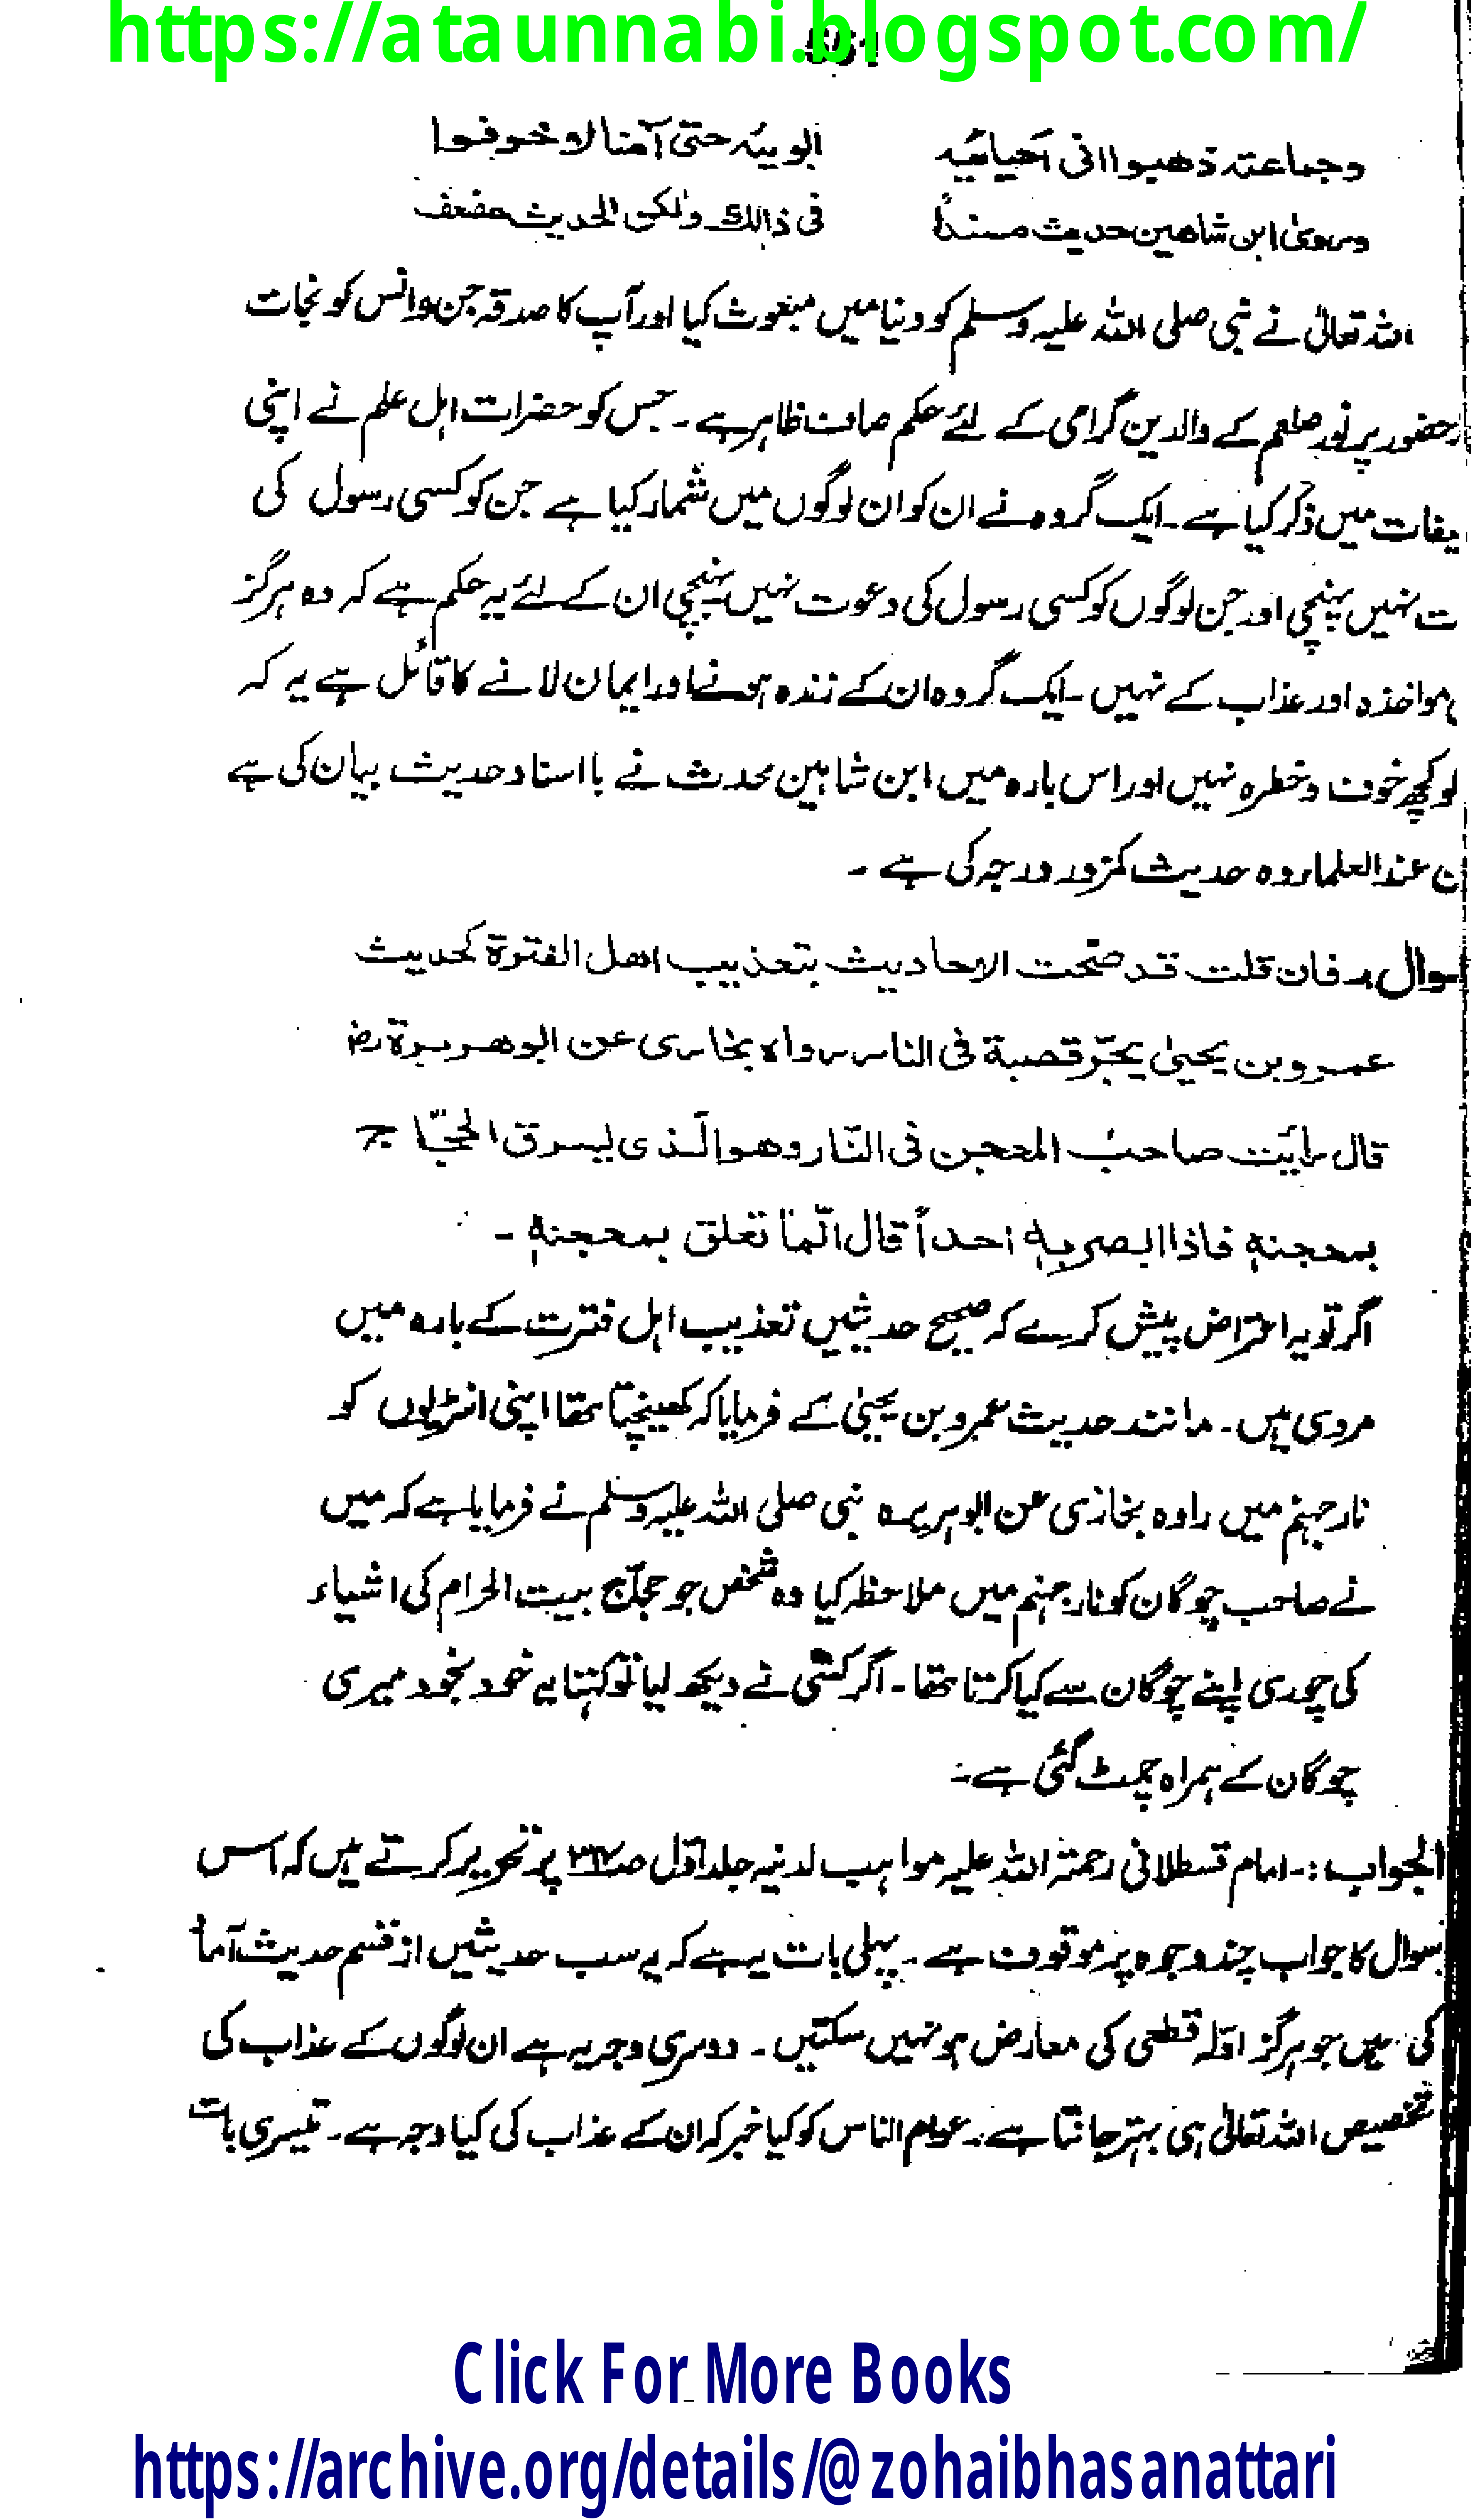 https://ataunnabi.blogspot.com/
وجماعتہ ذھبوا انی احیائیہ ابویہ حتیٰ آمنا لا خوفوا
وروی ابن شاھین حدیث مسنداً فی ذالک ولکن الحدیث مضعف
اللہ تعالیٰ نے نبی صلی اللہ علیہ وسلم کو دنیا میں مبعوث کیا اور آپ کا صدقہ جن و انس کو نجات
حضور پر نور صلعم کے والدین گرامی کے لئے حکم صاف ظاہر ہے ۔ جس کو حضرات اہل علم نے اپنی
یفات میں ذکر کیا ہے ۔ ایک گروہ نے ان کو ان لوگوں میں شمار کیا ہے جن کو کسی رسول کی
ت نہیں پہنچی اور جن لوگوں کو کسی رسول کی دعوت نہیں پہنچی ان کے لئے یہ حکم ہے کہ وہ ہرگز
مواخذہ اور عذاب کے نہیں ۔ ایک گروہ ان کے زندہ ہونے اور ایمان لانے کا قائل ہے یہ کہ
لو کچھ خوف و خطرہ نہیں اور اس بارہ میں ابن شاہین محدث نے با اسناد حدیث بیان کی ہے
ن عند العلماء وہ حدیث کمزور درجہ کی ہے ۔
سوال :۔ فان قلت قد صحت الاحادیث بتعذیب اھل الفترۃ کحدیث
عمرو بن یحییٰ یجرّ قصبۃ فی النار رواہ بخاری عن ابوھریرۃ رض
قال رأیت صاحب المحجن فی النّار وھو الّذی یسرق الحجّاج
بمحجنہٖ فاذا ابصر بہٖ احداً قال انّما تعلق بمحجنہٖ ۔
اگر تو یہ اعتراض پیش کرے کہ صحیح حدیثیں تعذیب اہل فترت کے بارہ میں
مروی ہیں ۔ مانند حدیث عمرو بن یحییٰ کے فرمایا کہ کھینچتا تھا اپنی انتڑیوں کو
نار جہنم میں راوہ بخاری عن ابوہریرہ نبی صلی اللہ علیہ وسلم نے فرمایا ہے کہ میں
نے صاحب چوگان کو نار جہنم میں ملاحظہ کیا وہ شخص جو حجّاج بیت الحرام کی اشیاء
کی چوری اپنے چوگان سے کیا کرتا تھا ۔ اگر کسی نے دیکھ لیا تو کہتا یے خود بخود میری
چوگان کے ہمراہ چمٹ گئی ہے ۔
الجواب :۔ امام قسطلانی رحمتہ اللہ علیہ مواہب لدنیہ جلد اوّل پر تحریر کرتے ہیں کہ اس
سوال کا جواب چند وجوہ پر موقوف ہے ۔ پہلی بات یہ ہے کہ یے سب حدیثیں از قسم حدیث آما
کی ہیں جو ہرگز ادّلہ قطعی کی معارض ہو نہیں سکتیں ۔ دوسری وجہ یہ ہے ان لوگوں کے عذاب کی
تخصیص اللہ تعالیٰ ہی بہتر جانتا ہے ۔ عوام الناس کو کیا خبر کہ ان کے عذاب کی کیا وجہ ہے ۔ تیسری بات
Click For More Books
https://archive.org/details/@zohaibhasanattari